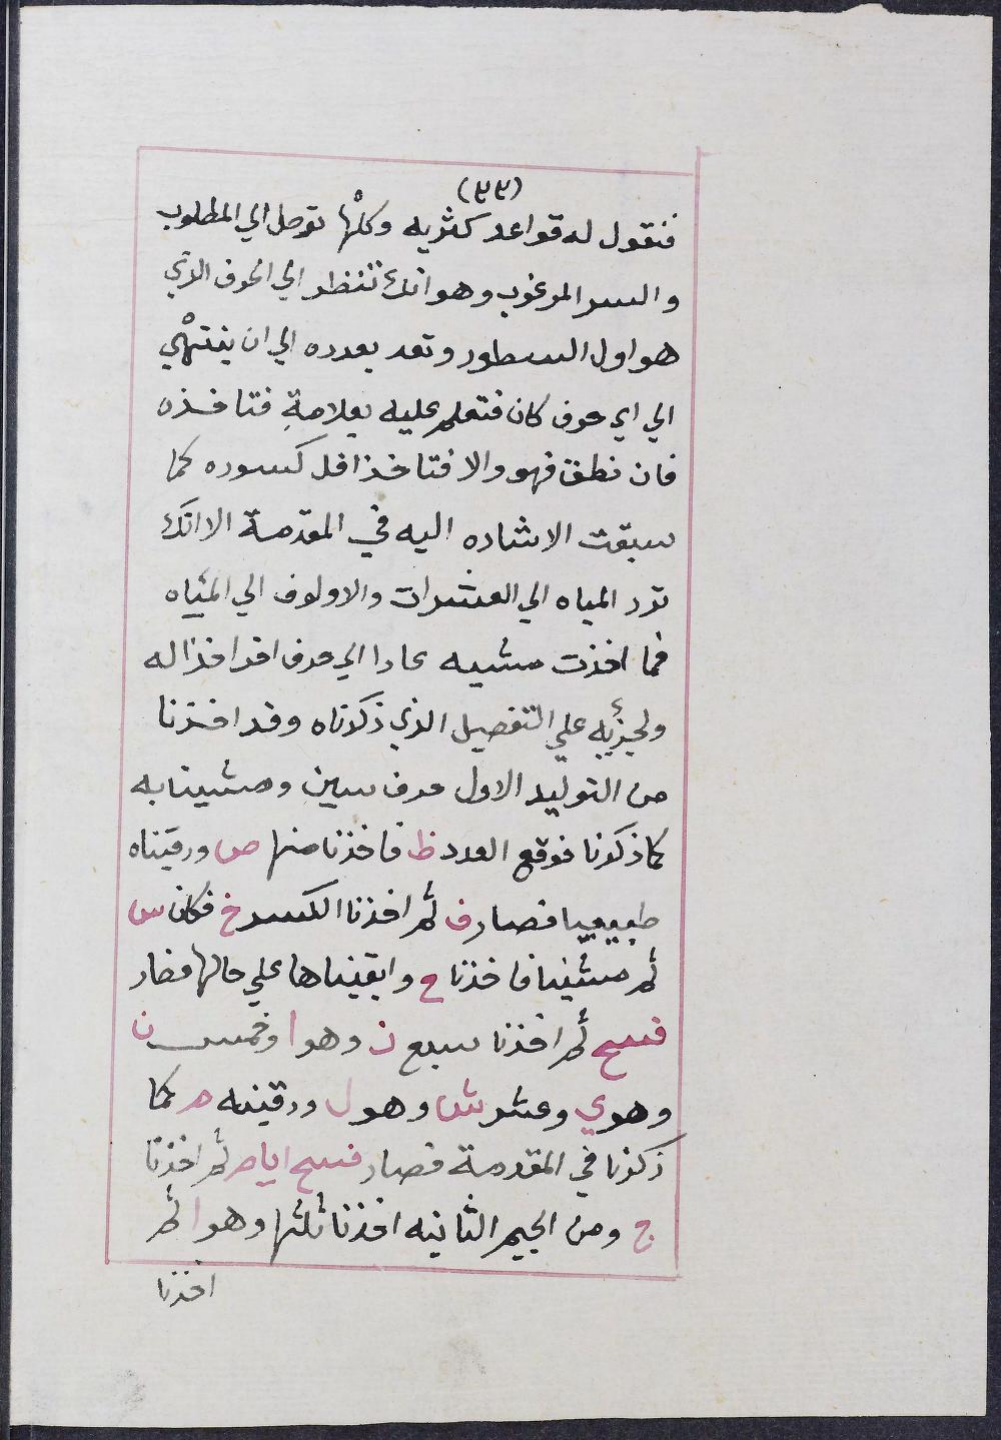 (٩٩)
فنقول له قواعد كثريه وكلها توصل الي المطلوب
والسر المرغوب وهو انك تنظر الي الحرف الذي
هو اول السطور وتعد بعدده الي ان ينتهي
الي اي حرف كان فتعلم عليه بعلامة فتاخذه
فان نطق فهو والا فتاخذ اقل كسوره كما
سبقت الاشاره اليه في المقدمة الا انك
ترد المياه الي العشرات والاولوف الي المئياه
فما اخذت مشيه عادا الي حرف اخر اخذا له
ولجزئه علي التفصيل الذي ذكرناه وقد اخذنا
من التوليد الاول حرف سين ومشينا به
كما ذكرنا فوقع العدد ظ فاخذنا منها ص ورقيناه
طبيعيا فصار ف ثم اخذنا الكسر خ فكان س
ثم مشينا فاخذنا ح وابقيناها علي حالها فصار
فسح ثم اخذنا سبع ز وهو ا وخمس ن
وهو ي وعشر ش وهو ل ورقينه م كما
ذكرنا في المقدمة فصار فسح ايام ثم اخذنا
ج ومن الجيم الثانيه اخذنا ثلثها وهو ا ثم
اخذنا